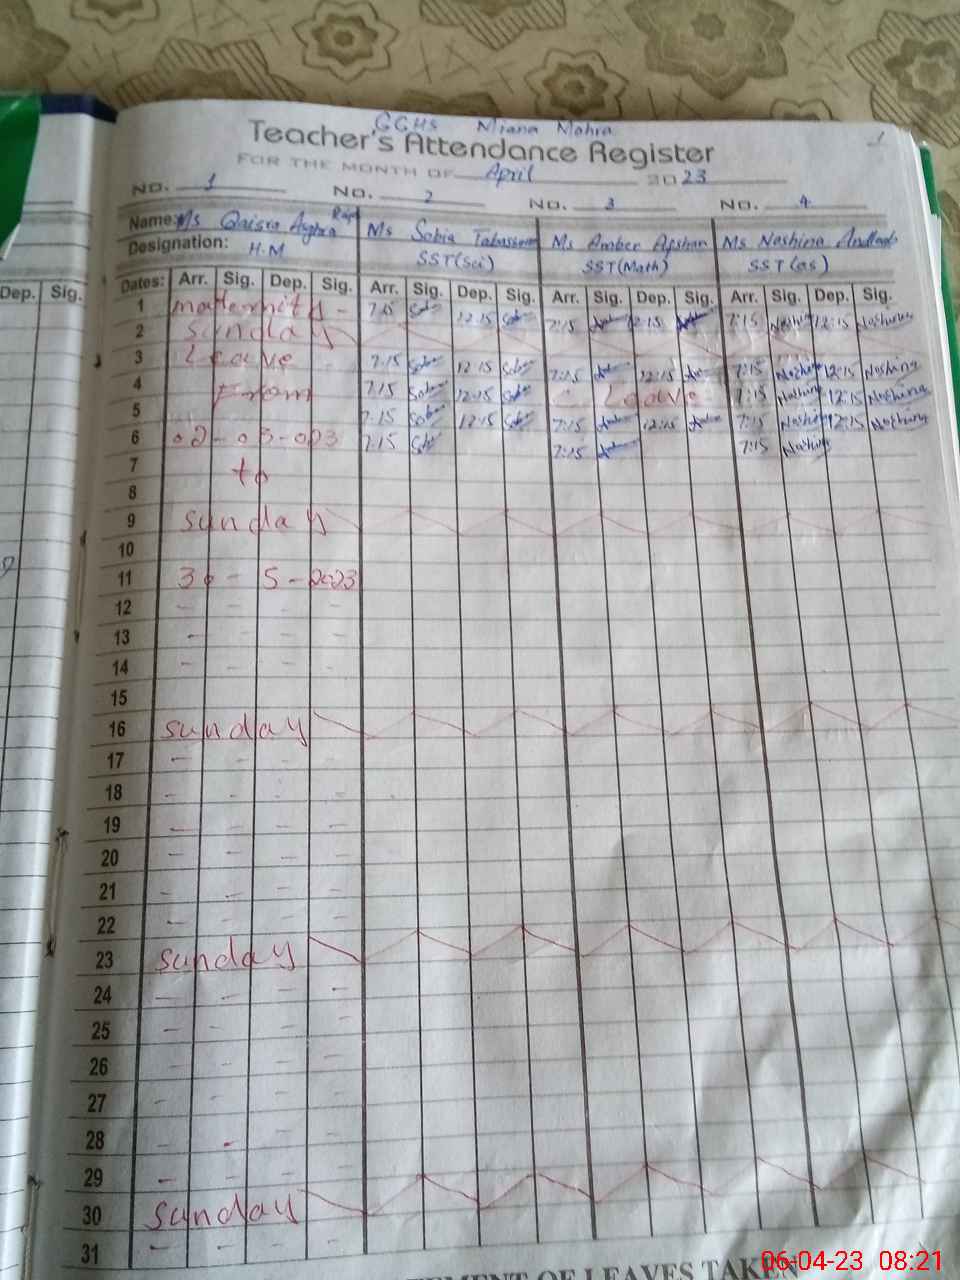 GGHS Miana Mohra
Teacher's Attendance Register 1
FOR THE MONTH OF April 2023
NO. 1 NO. 2 NO. 3 NO. 4
Name: Ms Qaisra Ms Sobia Tabassum Ms Amber Afshan Ms Noshina
Designation: H.M SST(Sci) SST(Math) SST(as)
Dep. Sig. Dates: Arr. Sig. Dep. Sig. Arr. Sig. Dep. Sig. Arr. Sig. Dep. Sig. Arr. Sig. Dep. Sig.
1 maternity - 7.15 12.15 7:15 12:15 7:15 12:15 Noshina
2 sunday
3 Leave 7.15 12.15 7:15 12:15 7:15 Noshina 12:15 Noshina
4 From 7.15 12:15 C. Leave 7:15 Noshina 12:15 Noshina
5 7.15 12:15 7:15 12:15 7:15 Noshina 12:15 Noshina
6 02-03-023 7.15 7:15 7:15 Noshina
7 to
8
9 sunday
10
11 30 - 5 - 2023
12 - - - -
13 - - - -
14 - - - -
15
16 sunday
17 - - - -
18 - - - -
19 - - - -
20 - - - -
21 - - - -
22 - - - -
23 sunday
24 - - - -
25 - - - -
26 - - - -
27 - - - -
28 - - - -
29 - - - -
30 sunday
31 - - - -
EMENT OF LEAVES TAKEN
06-04-23 08:21